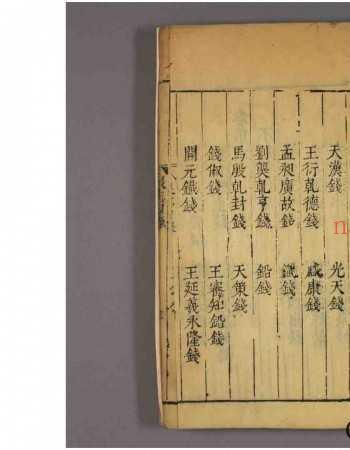 天漢錢　光天錢
王衍乾德錢　咸康錢
孟昶廣政錢　鐵錢
劉龑乾亨錢　鉛錢
馬殷乾封錢　天策錢
錢俶錢　王審知鉛錢
開元鐵錢　王延義永隆錢